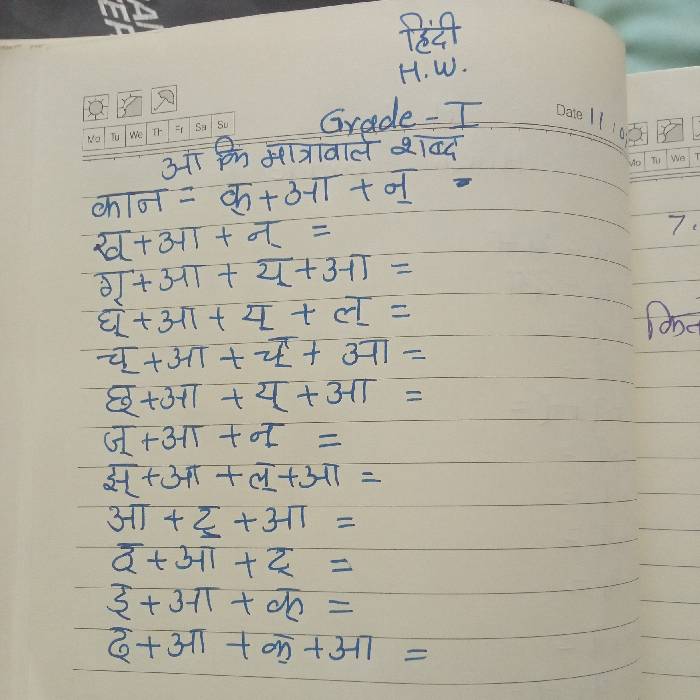 हिंदी
H.W.
Mo Tu We Th Fr Sa Su
Grade - I
Date 11
आ कि मात्रावाले शब्द
कान = क् + आ + न् -
ख् + आ + न् =
ग् + आ + य् + आ =
घ् + आ + य् + ल् =
च् + आ + च् + आ =
छ् + आ + य् + आ =
ज् + आ + न् =
झ् + आ + ल् + आ =
आ + ट् + आ =
ठ् + आ + ट् =
ड् + आ + क् =
ढ् + आ + क् + आ =
Mo Tu We
7.